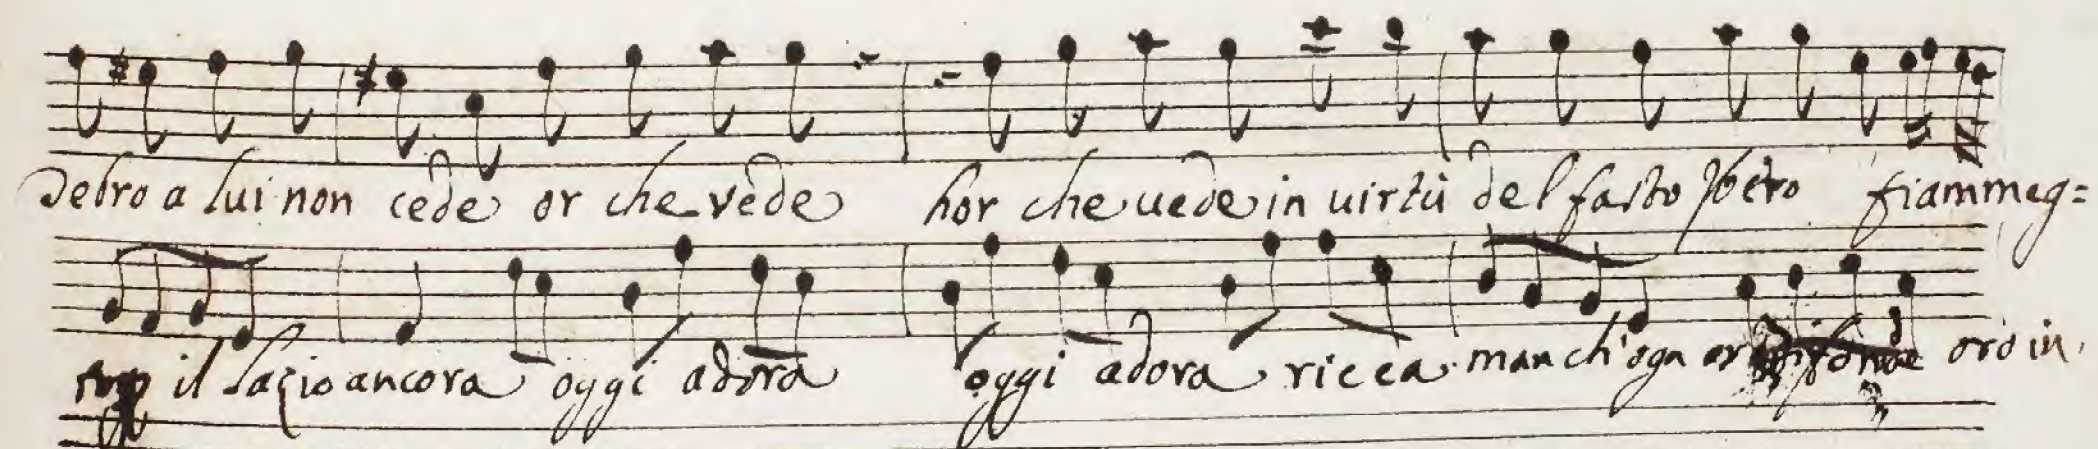 debro a lui non cede or che vede hor che uede in uirtù del fasto Ibero fiammeg=
il Lazio ancora oggi adora oggi adora ricca man ch'ogn or oro in